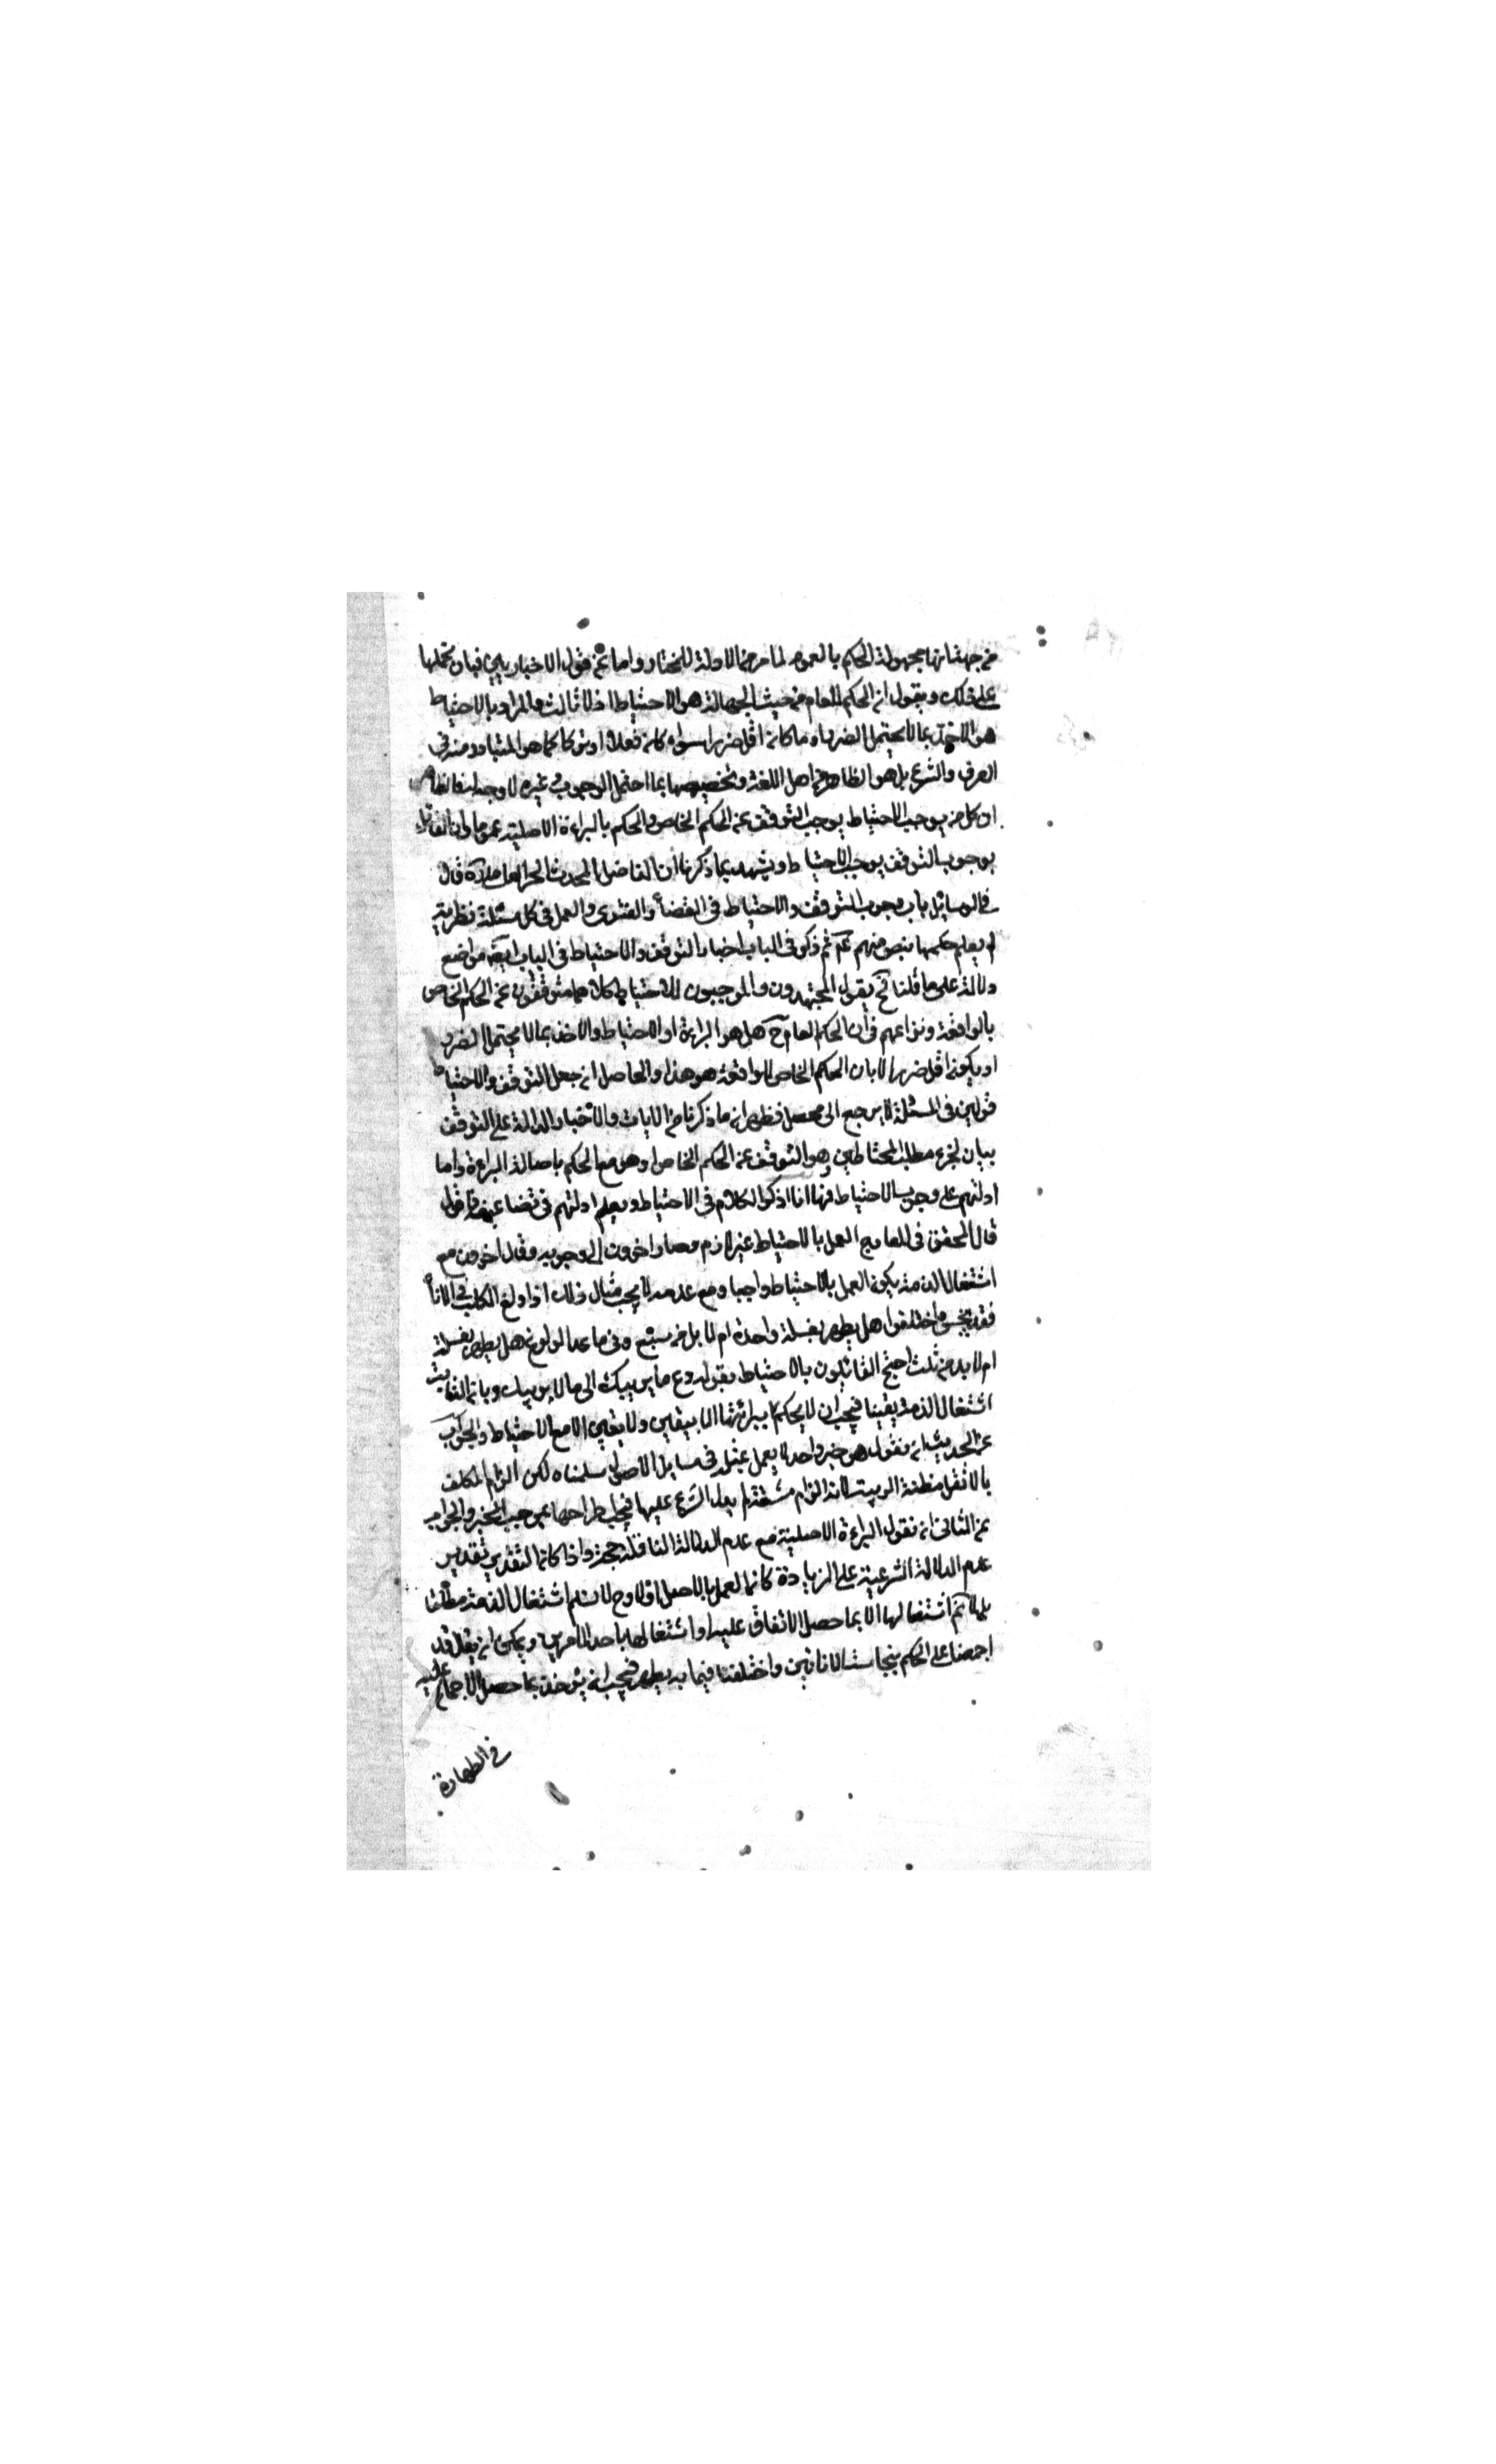 من جهة انها مجهولة الحكم بالعموم لما مر من الادلة للمختار واما عن قول الاخباريين فبان نحملها
على ذلك ويقول ان الحكم العام من حيث الجهالة هو الاحتياط اذ لا ثالث والمراد بالاحتياط
هو الاخذ بما لا يحتمل الضرر او ما كان اقل ضررا سواء كان فعلا او تركا كما هو المتبادر منه في
العرف والشرع بل هو الظاهر من اهل اللغة وتخصيصها بما احتمل الوجوب وغيره لا وجه له فالظاهر
ان كل من يوجب الاحتياط يوجب التوقف عن الحكم الخاص والحكم بالبراءة الاصلية عموما وان القائل
بوجوب التوقف يوجب الاحتياط ويشهد بما ذكرنا ان الفاضل المحدث الحر العاملي ره قال
في الوسائل باب وجوب التوقف والاحتياط في القضأ والفتوى والعمل في كل مسئلة نظرية
لم يعلم حكمها بنص منهم عم ثم ذكر في الباب اخبار التوقف والاحتياط في الباب ايضه مواضع
دلالة على ما قلنا فح يقول المجتهدون والموجبون للاحتياط كلاهما متوقفون عن الحكم الخاص
بالواقعة ونزاعهم في ان الحكم العام ح هل هو البراءة او الاحتياط والاخذ بما لا يحتمل الضرر
او يكون اقل ضررا لا بان الحكم الخاص للواقعة هو هذا والحاصل ان جعل التوقف والاحتياط
قولين في المسئلة لا يرجع الى محصل فظهر ان ما ذكرنا من الايات والاخبار الدالة على التوقف
بيان لجزء مطلب المحتاطين وهو التوقف عن الحكم الخاص او هو مع الحكم باصالة البراءة واما
ادلتهم على وجوب الاحتياط فها انا اذكر الكلام في الاحتياط ويعلم ادلتهم في تضاعيفه فاقول
قال المحقق في المعارج العمل بالاحتياط غير لازم وصار اخرون الى وجوبه وقال اخرون مع
اشتغال الذمة يكون العمل بالاحتياط واجبا ومع عدمه لا يجب مثال ذلك اذا ولغ الكلب في الانأ
فقد نجس واختلفوا هل يطهر بغسلة واحدة ام لا بد من سبع وفي ما عدا الولوغ هل يطهر بغسلة
ام لا بد من ثلث احتج القائلون بالاحتياط بقوله دع ما يريبك الى ما لا يريبك وبان الثابت
اشتغال الذمة يقينا فيجب ان لا يحكم ببرائتها الا بيقين ولا يقين الا مع الاحتياط والجواب
عن الحديث ان نقول هو خبر واحد لا يعمل بمثله في مسايل الاصول سلمناه لكن الزام المكلف
بالاثقل مظنة الريبة لانه الزام مشقة لم يدل الشرع عليها فيجب اطراحها بموجب الخبر والجواب
عن الثاني ان نقول البراءة الاصلية مع عدم الدلالة الناقلة حجة واذا كان التقدير تقدير
عدم الدلالة الشرعية على الزيادة كان العمل بالاصل اولى وح لا نسلم اشتغال الذمة مطلقا
بل لا نم اشتغالها الا بما حصل الاتفاق عليه او اشتغالها باحد الامرين ويمكن ان يقال قد
اجمعنا على الحكم بنجاسة الانائين واختلفنا فيما به يطهر فيجب ان يؤخذ بما حصل الاجماع عليه
في الطهارة